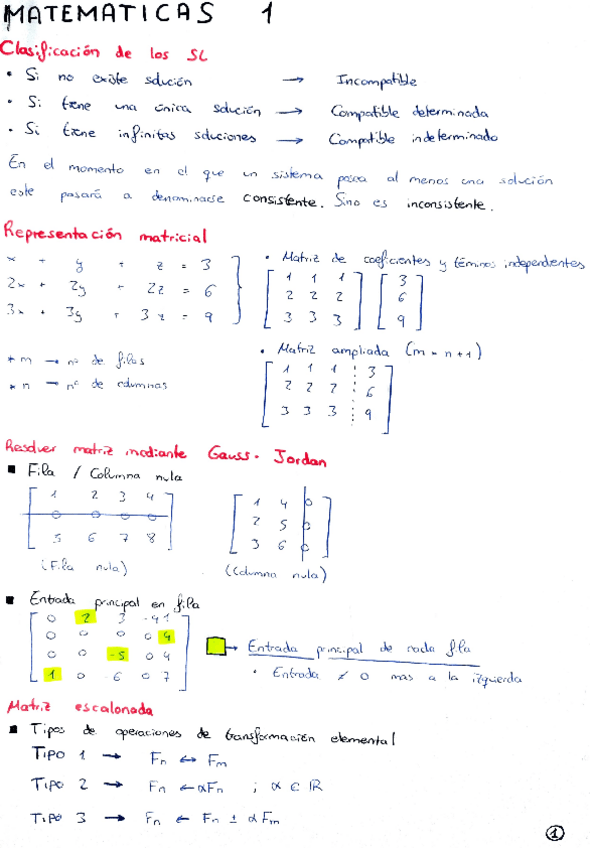 MATEMATICAS 1
Clasificación de los SL
• Si no existe solución → Incompatible
• Si tiene una única solución → Compatible determinada
• Si tiene infinitas soluciones → Compatible indeterminado
En el momento en el que un sistema posea al menos una solución
este pasará a denominarse consistente. Sino es inconsistente.
Representación matricial
x + y + z = 3
2x + 2y + 2z = 6
3x + 3y + 3z = 9
• Matriz de coeficientes y téminos independentes
1 1 1 3
2 2 2 6
3 3 3 9
* m → nº de filas
* n → nº de columnas
• Matriz ampliada (m - n+1)
1 1 1 : 3
2 2 2 : 6
3 3 3 : 9
Resolver matriz mediante Gauss - Jordan
■ Fila / Columna nula
1 2 3 4
0 0 0 0
5 6 7 8
(Fila nula)
1 4 0
2 5 0
3 6 0
(Columna nula)
■ Entrada principal en fila
0 2 3 -4 1
0 0 0 0 4
0 0 -5 0 4
1 0 6 0 7
→ Entrada principal de cada fila
• Entrada ≠ 0 mas a la izquierda
Matriz escalonada
■ Tipos de operaciones de transformación elemental
TIPO 1 → Fn ↔ Fm
TIPO 2 → Fn ← αFn ; α ∈ ℝ
TIPO 3 → Fn ← Fn ± αFm
1